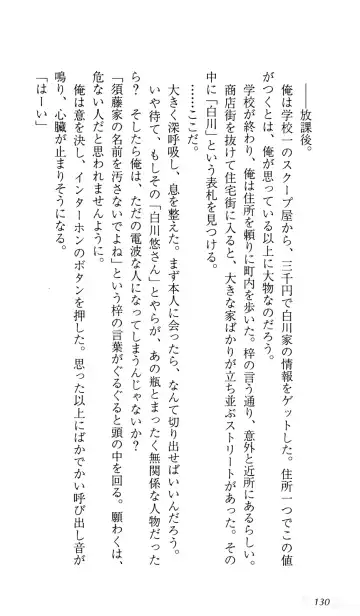 ――放課後。
俺は学校一のスクープ屋から、三千円で白川家の情報をゲットした。住所一つでこの値
がつくとは、俺が思っている以上に大物なのだろう。
学校が終わり、俺は住所を頼りに町内を歩いた。梓の言う通り、意外と近所にあるらしい。
商店街を抜けて住宅街に入ると、大きな家ばかりが立ち並ぶストリートがあった。その
中に「白川」という表札を見つける。
……ここだ。
大きく深呼吸し、息を整えた。まず本人に会ったら、なんて切り出せばいいんだろう。
いや待て、もしその「白川悠さん」とやらが、あの瓶とまったく無関係な人物だった
ら？　そしたら俺は、ただの電波な人になってしまうんじゃないか？
「須藤家の名前を汚さないでよね」という梓の言葉がぐるぐると頭の中を回る。願わくは、
危ない人だと思われませんように。
俺は意を決し、インターホンのボタンを押した。思った以上にばかでかい呼び出し音が
鳴り、心臓が止まりそうになる。
「はーい」
130